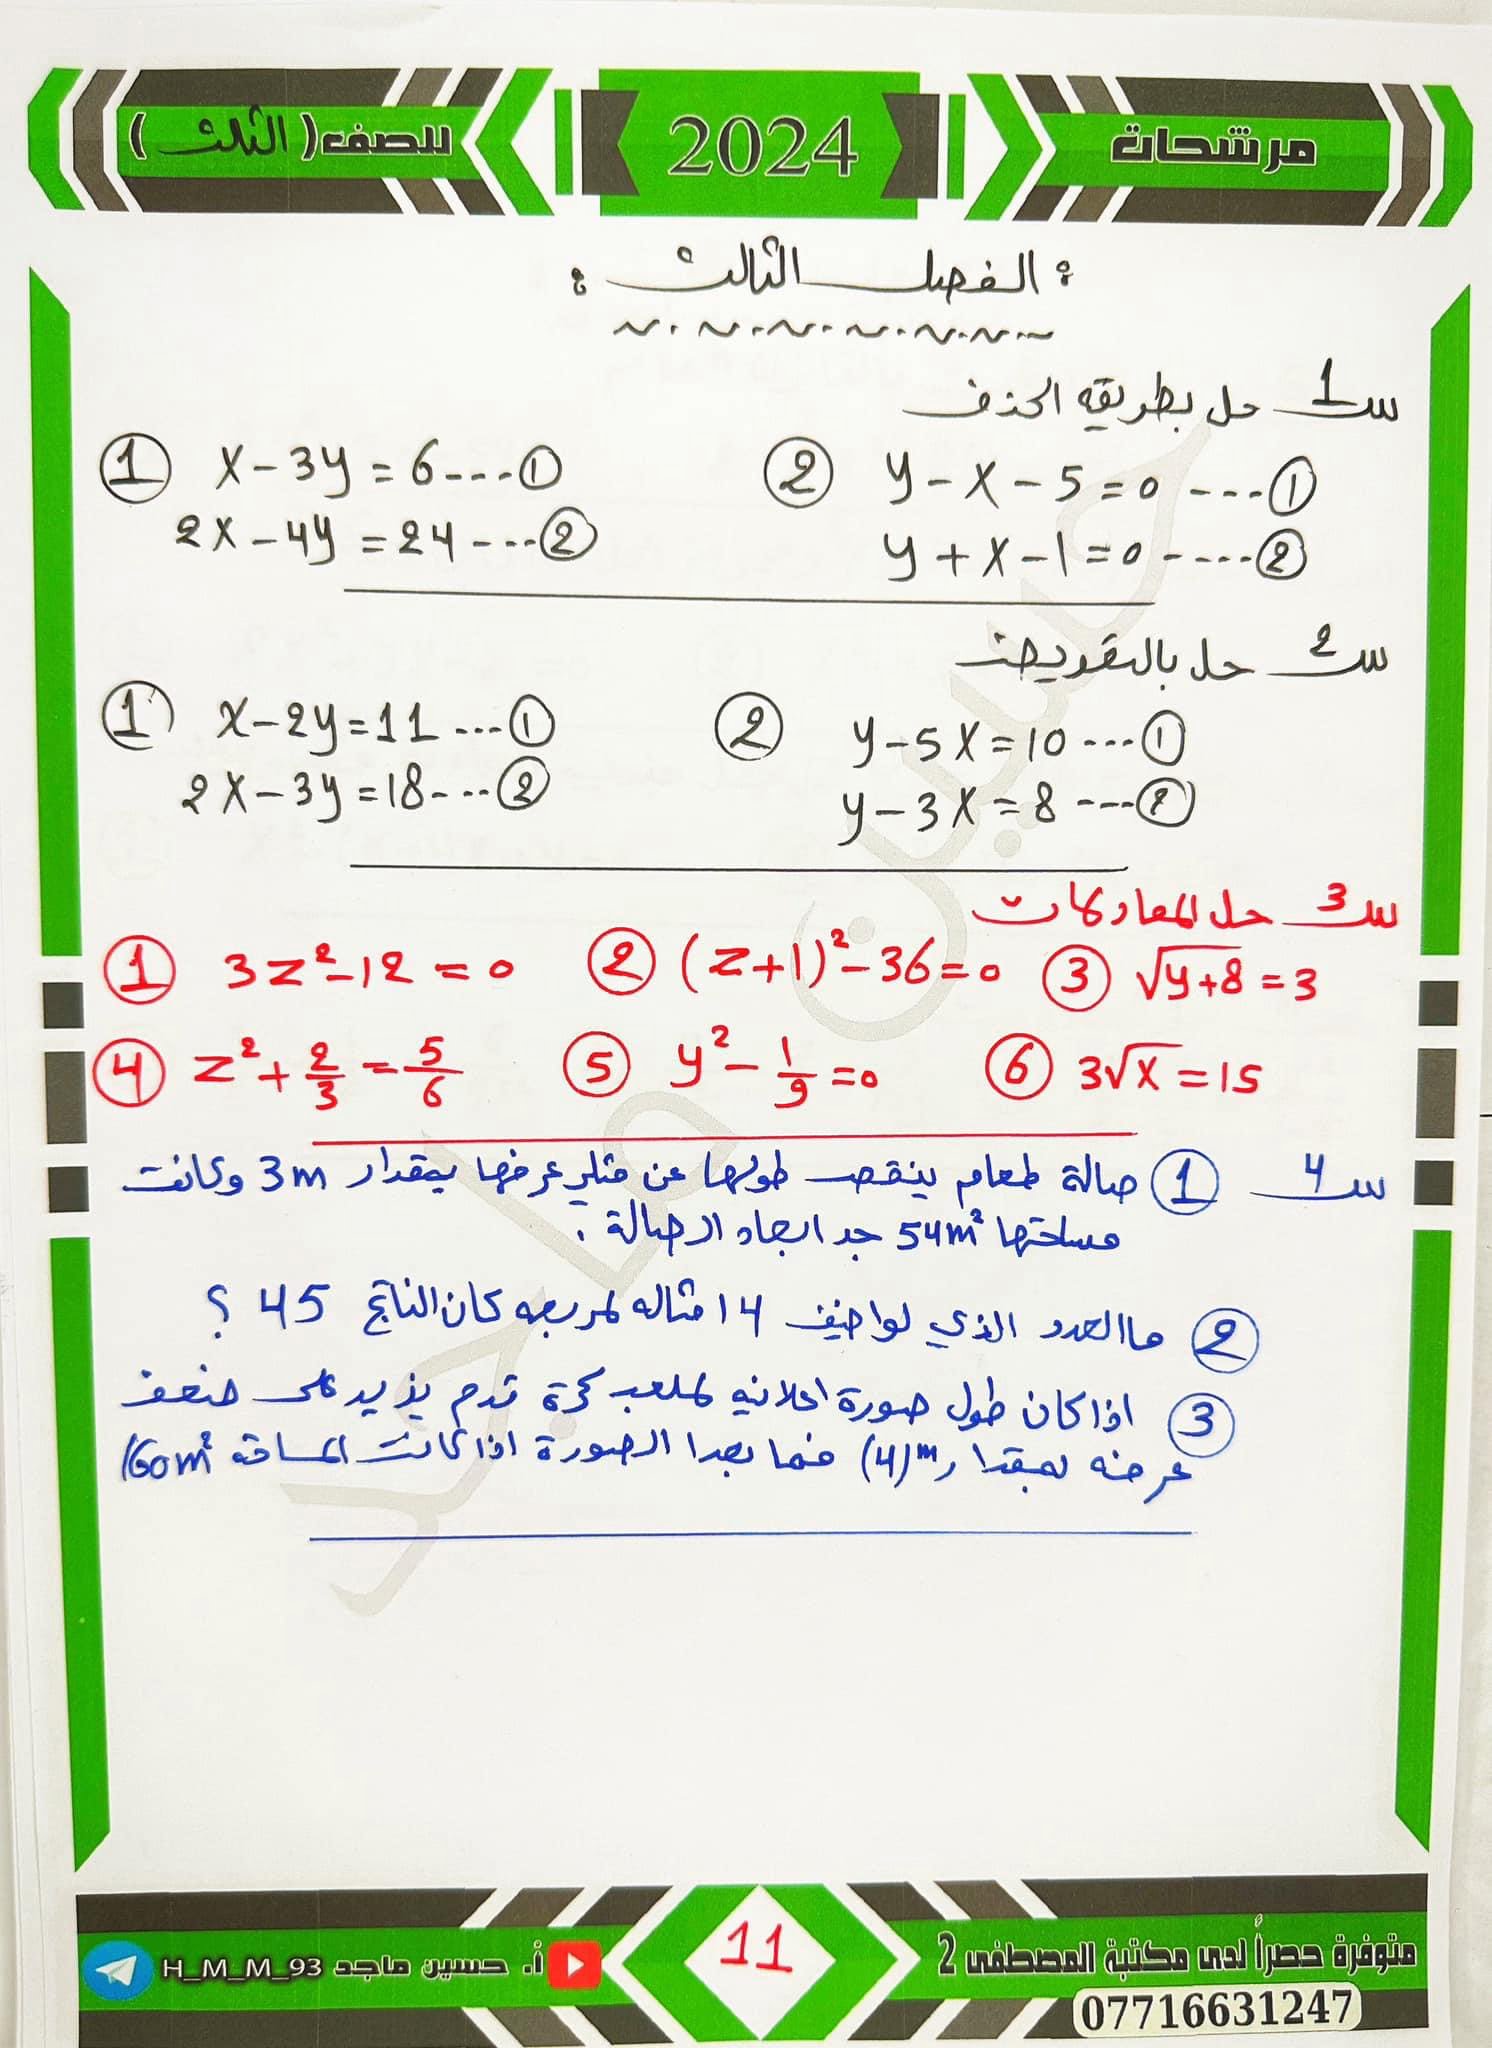 مرشحات 2024 للصف ( الثالث )
الفصل الثالث :
س1 حل بطريقة الحذف
① x - 3y = 6 ---- ① ② y - x - 5 = 0 ---- ①
2x - 4y = 24 ---- ② y + x - 1 = 0 ----- ②
س2 حل بالتعويض
① x - 2y = 11 ---- ① ② y - 5x = 10 ---- ①
2x - 3y = 18 ---- ② y - 3x = 8 ---- ②
س3 حل المعادلات
① 3z² - 12 = 0 ② (z+1)² - 36 = 0 ③ √y+8 = 3
④ z² + 2/3 = 5/6 ⑤ y² - 1/9 = 0 ⑥ 3√x = 15
س4 ① صالة طعام ينقص طولها عن مثلي عرضها بمقدار 3m وكانت
مساحتها 54m² جد ابعاد الصالة .
② ما العدد الذي لو اضيف 14 مثاله لمربعه كان الناتج 45 ؟
③ اذا كان طول صورة اعلانيه لملعب كرة قدم يزيد على ضعف
عرضه بمقدار (4)m فما بعدا الصورة اذا كانت المساحة 160m²
حسين ماجد
متوفرة حصراً لدى مكتبة المصطفى 2
07716631247
11
أ. حسين ماجد H_M_M_93